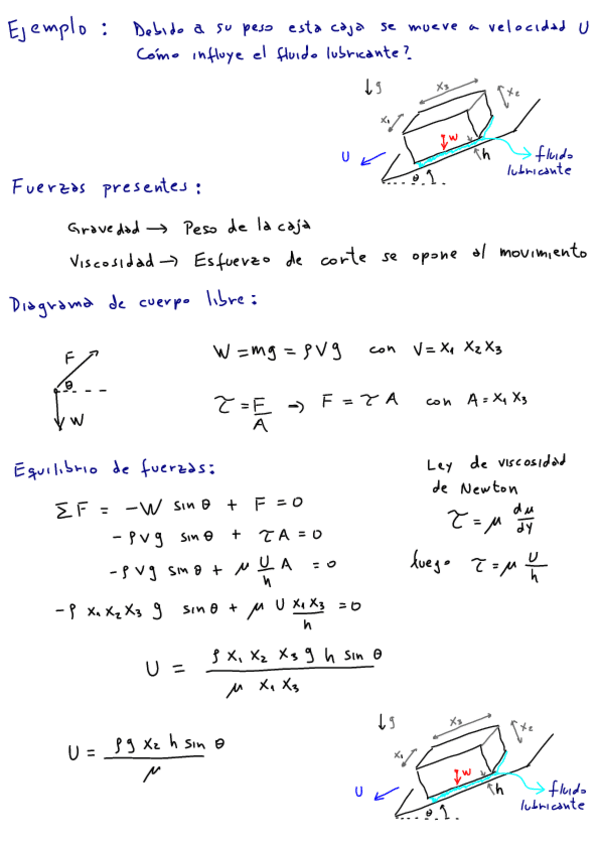 Ejemplo : Debido a su peso esta caja se mueve a velocidad U
Cómo influye el fluido lubricante?
↓g
x3
x2
x1
W
U
h
θ
fluido
lubricante
Fuerzas presentes :
Gravedad → Peso de la caja
Viscosidad → Esfuerzo de corte se opone al movimiento
Diagrama de cuerpo libre :
F
θ
W
W = mg = ρVg con V = x1 x2 x3
τ = F/A → F = τ A con A = x1 x3
Equilibrio de fuerzas :
Ley de viscosidad
de Newton
τ = μ du/dy
luego τ = μ U/h
ΣF = -W sin θ + F = 0
-ρVg sin θ + τA = 0
-ρVg sin θ + μ U/h A = 0
-ρ x1 x2 x3 g sin θ + μ U x1 x3/h = 0
U = ρ x1 x2 x3 g h sin θ / μ x1 x3
U = ρg x2 h sin θ / μ
↓g
x3
x2
x1
W
U
h
θ
fluido
lubricante